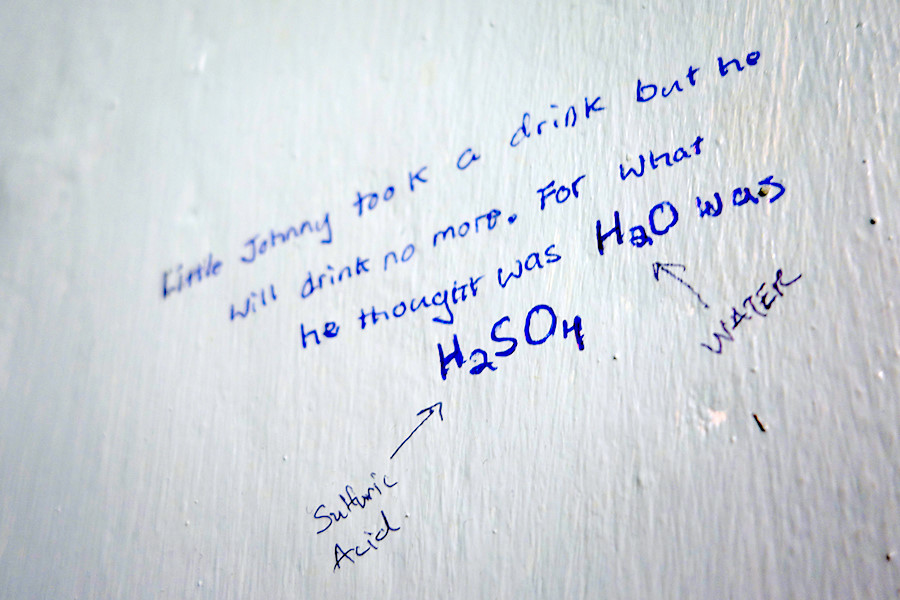 Little Johnny took a drink but he
will drink no more. For what
he thought was H₂O was
H₂SO₄
WATER
Sulfuric
Acid